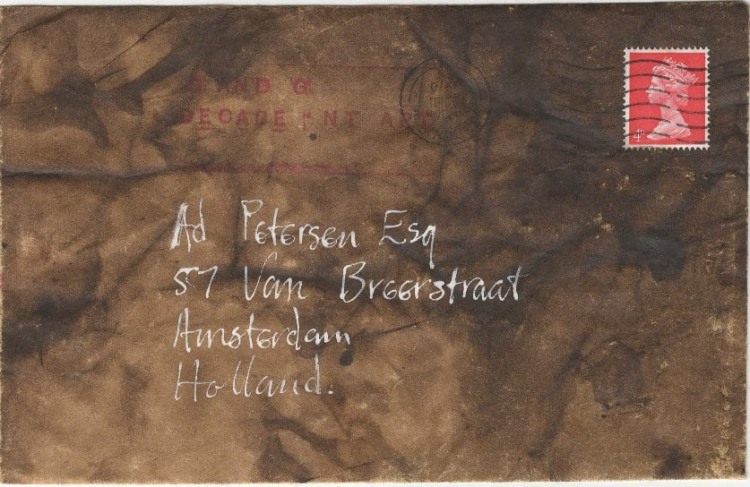 G AND G
DECADENT ART
4ᴰ
Ad Petersen Esq
57 Van Breerstraat
Amsterdam
Holland.